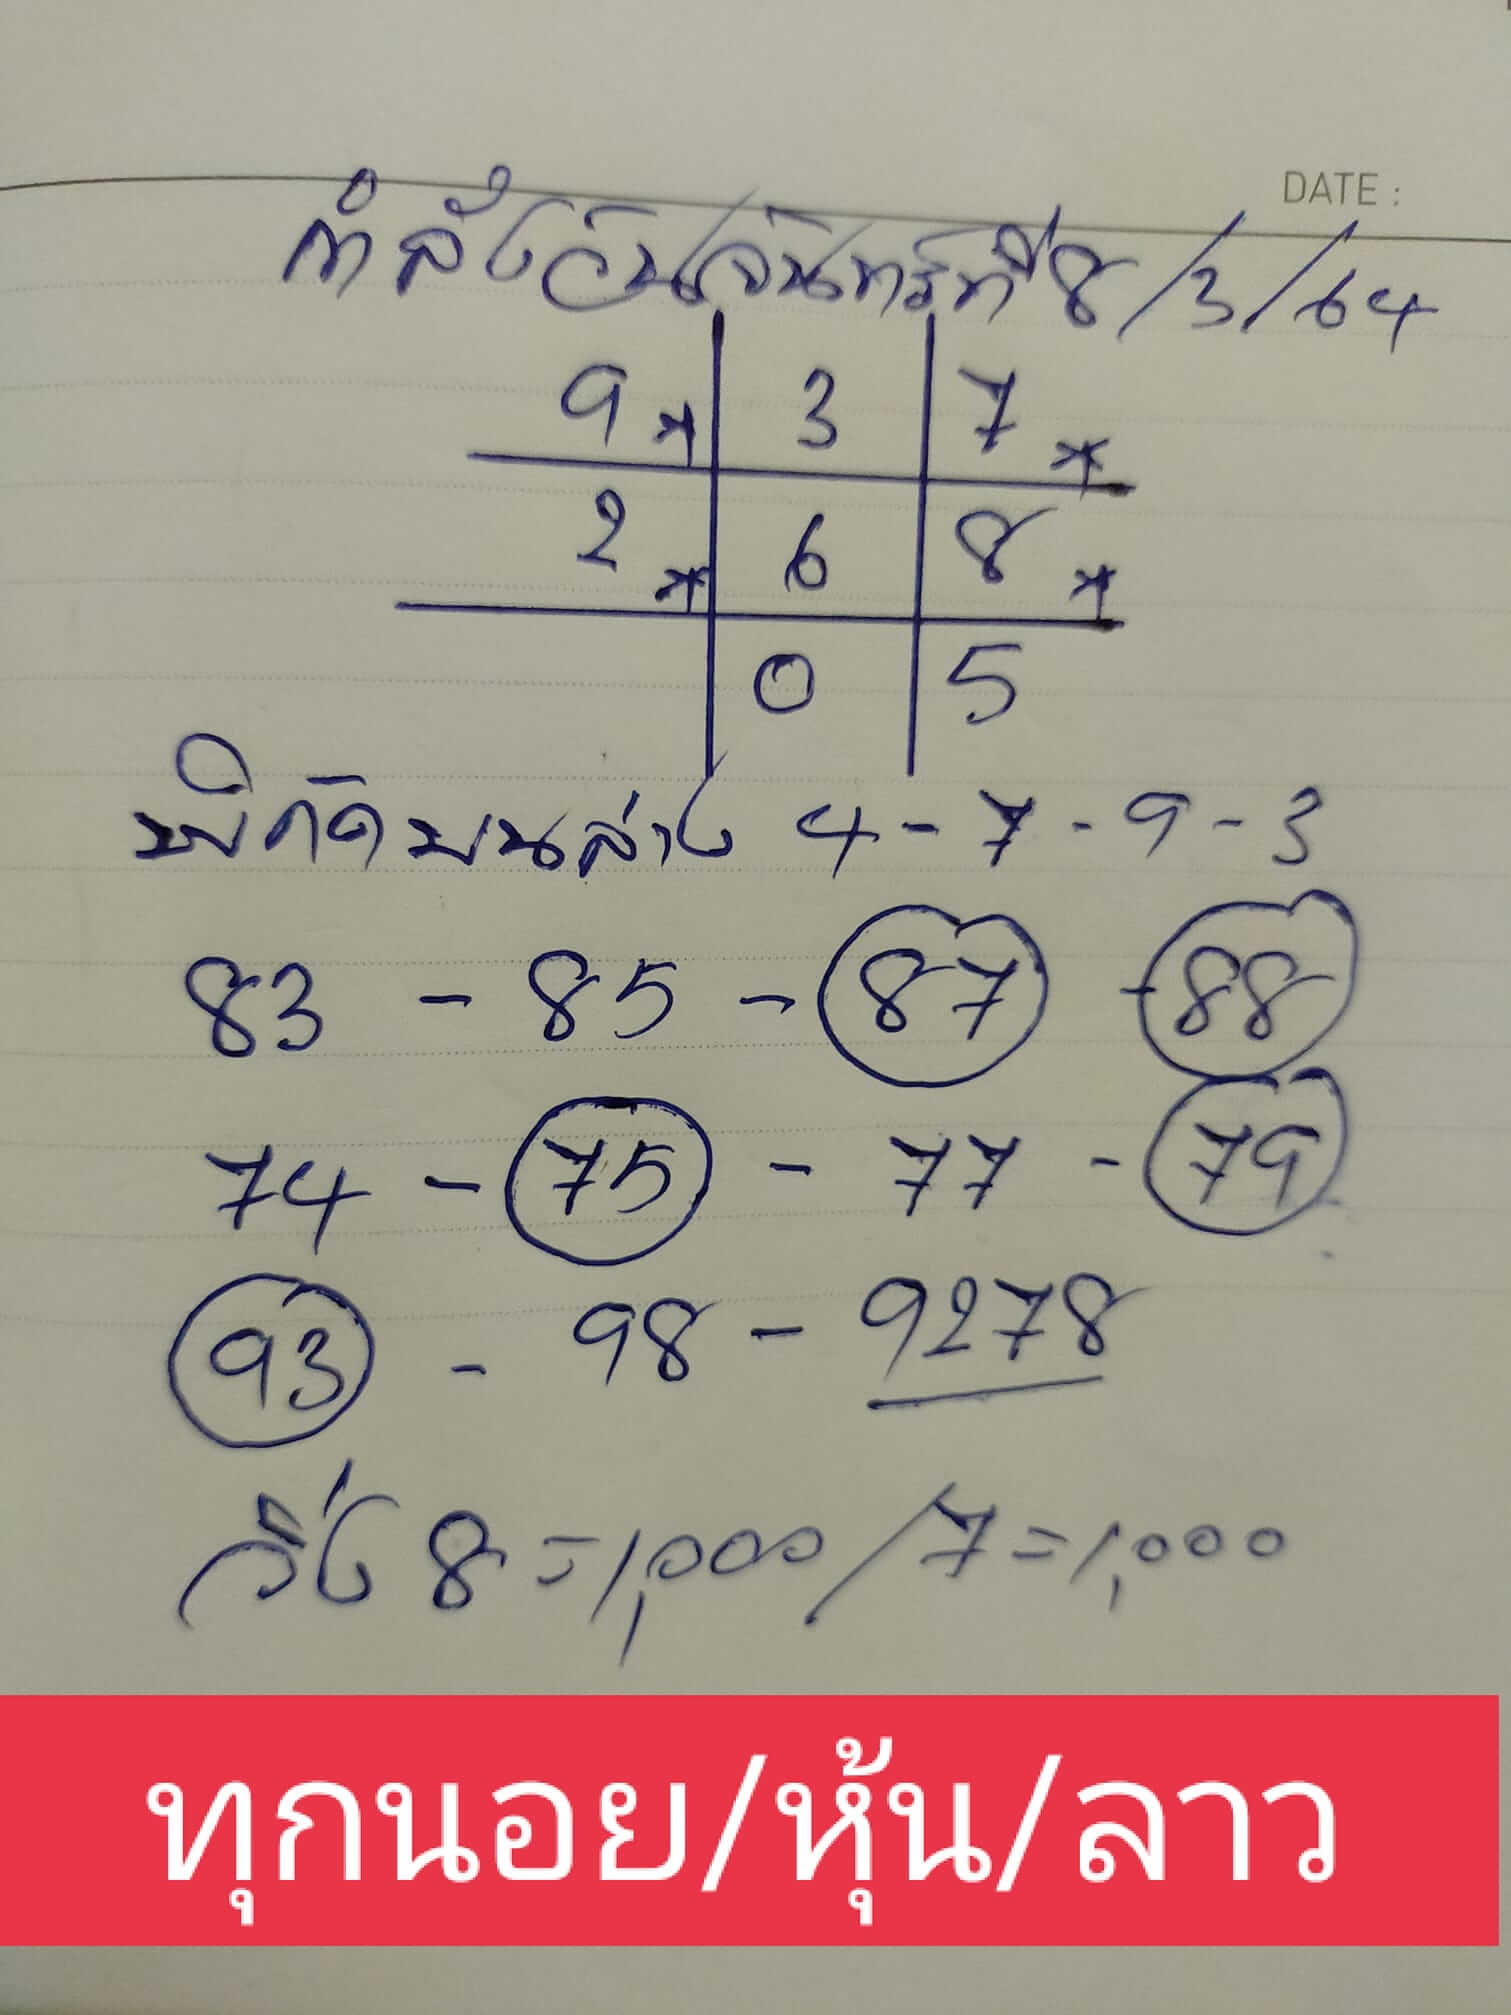 DATE :
กำลังวันจันทร์ที่ 8/3/64
9* 3 7*
2* 6 8*
0 5
พิกัดบนล่าง 4-7-9-3
83 - 85 - 87 - 88
74 - 75 - 77 - 79
93 - 98 - 9278
วิ่ง 8=1,000/7=1,000
ทุกนอย/หุ้น/ลาว